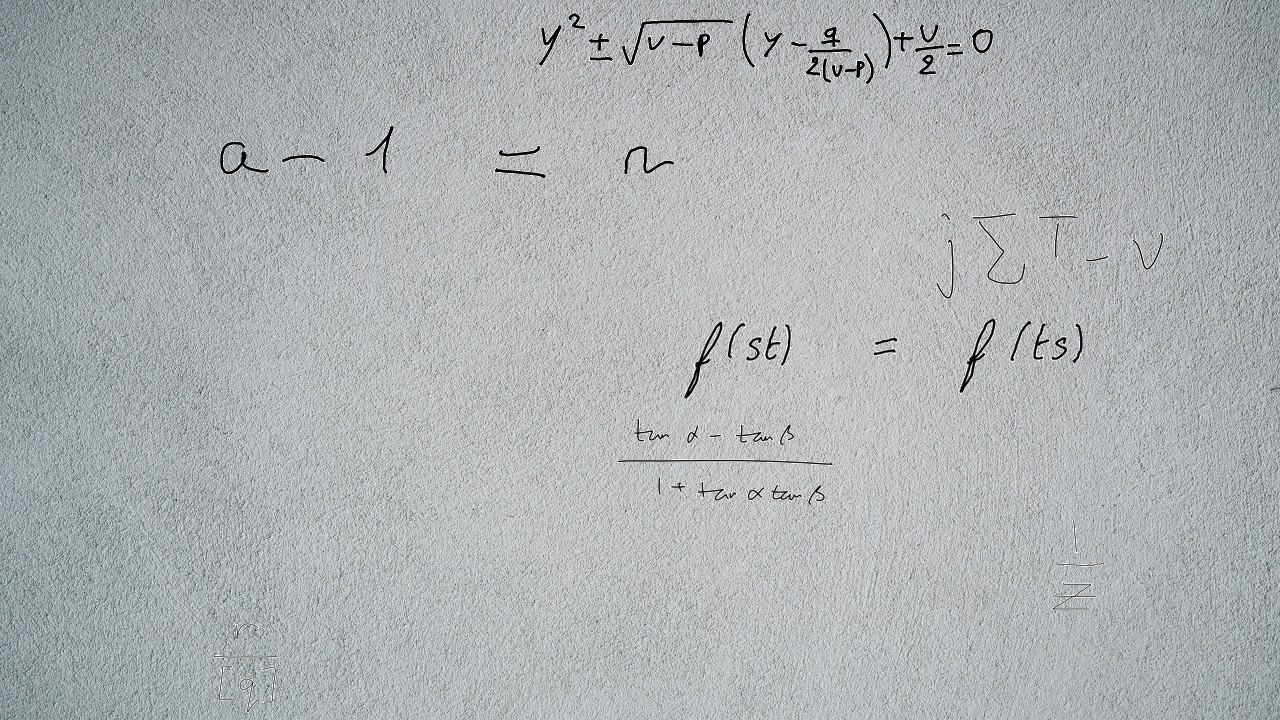 y² ± √(v-p) (y - q/(2(v-p))) + v/2 = 0
a - 1 = n
j ∑ T - v
f(st) = f(ts)
(tan α - tan β)/(1 + tan α tan β)
1/z
r/[q]